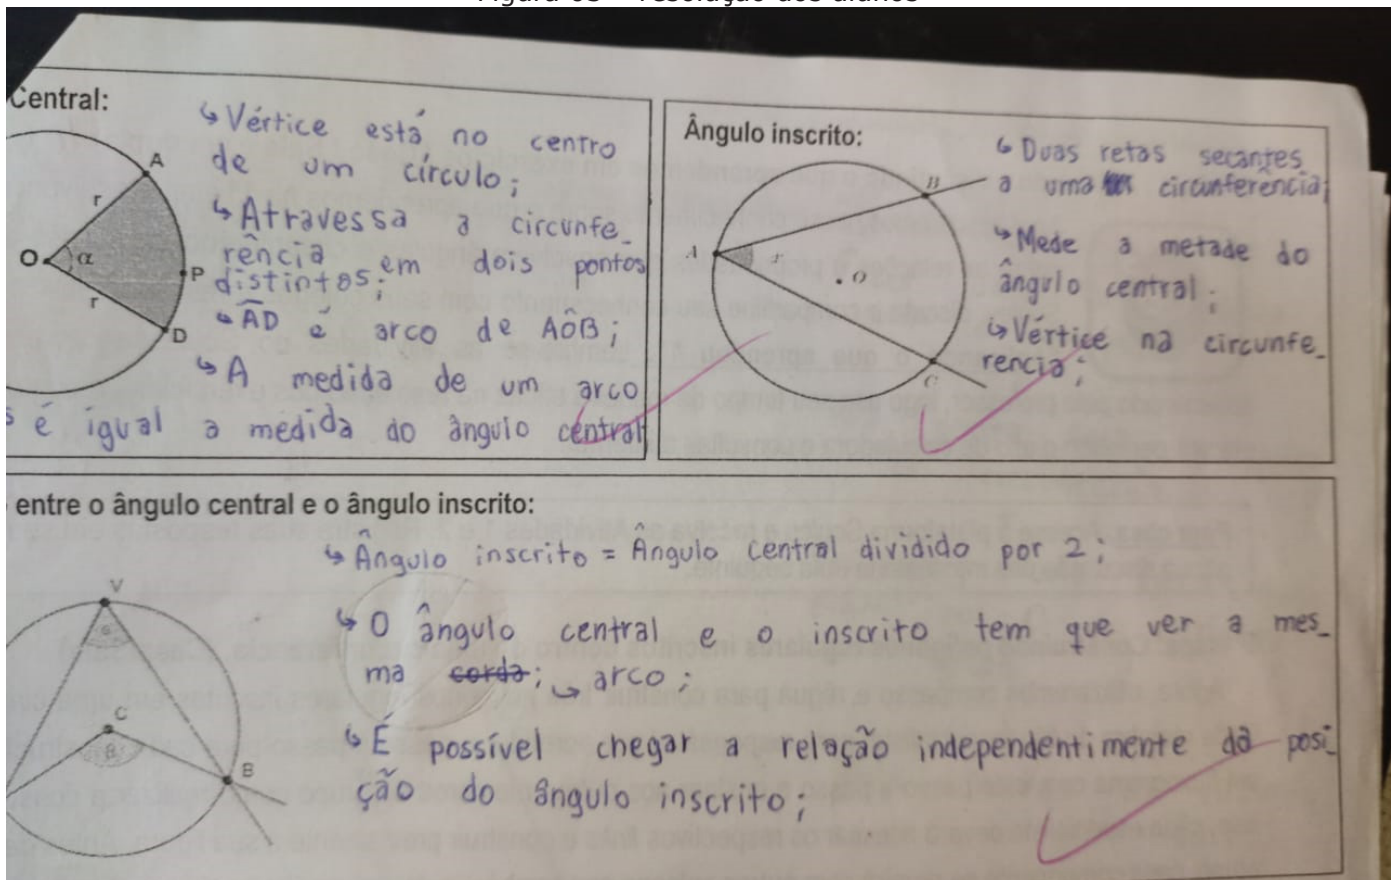 Central:
↳ Vértice está no centro
de um círculo;
↳ Atravessa a circunfe_
rência em dois pontos
distintos;
↳ AD é arco de AÔB;
↳ A medida de um arco
é igual a medida do ângulo central
A
r
O
α
P
r
D
Ângulo inscrito:
↳ Duas retas secantes
a uma circunferência;
↳ Mede a metade do
ângulo central;
↳ Vértice na circunfe_
rencia;
B
A
x
O
C
entre o ângulo central e o ângulo inscrito:
↳ Ângulo inscrito = Ângulo central dividido por 2;
↳ O ângulo central e o inscrito tem que ver a mes_
ma corda; ↳ arco;
↳ É possível chegar a relação independentimente da posi_
ção do ângulo inscrito;
V
C
B